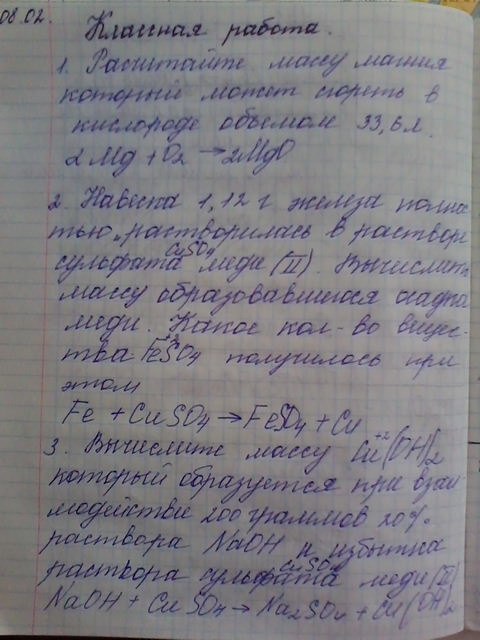 08.02.
Классная работа.
1. Расчитайте массу магния
который может сгореть в
кислороде объёмом 33,6 л.
2Mg + O₂ → 2MgO
2. Навеска 1,12 г железа полнос
тью растворилась в растворе
CuSO₄
сульфата меди (II). Вычислить
массу образовавшегося осадка
меди. Какое кол-во вещес-
тва FeSO₄ получилось при
этом
Fe + CuSO₄ → FeSO₄ + Cu
3. Вычислите массу Cu⁺²(OH)₂
который образуется при взаи
модействие 200 граммов 20%
раствора NaOH и избытка
CuSO₄
раствора сульфата меди (II)
NaOH + CuSO₄ → Na₂SO₄ + Cu(OH)₂